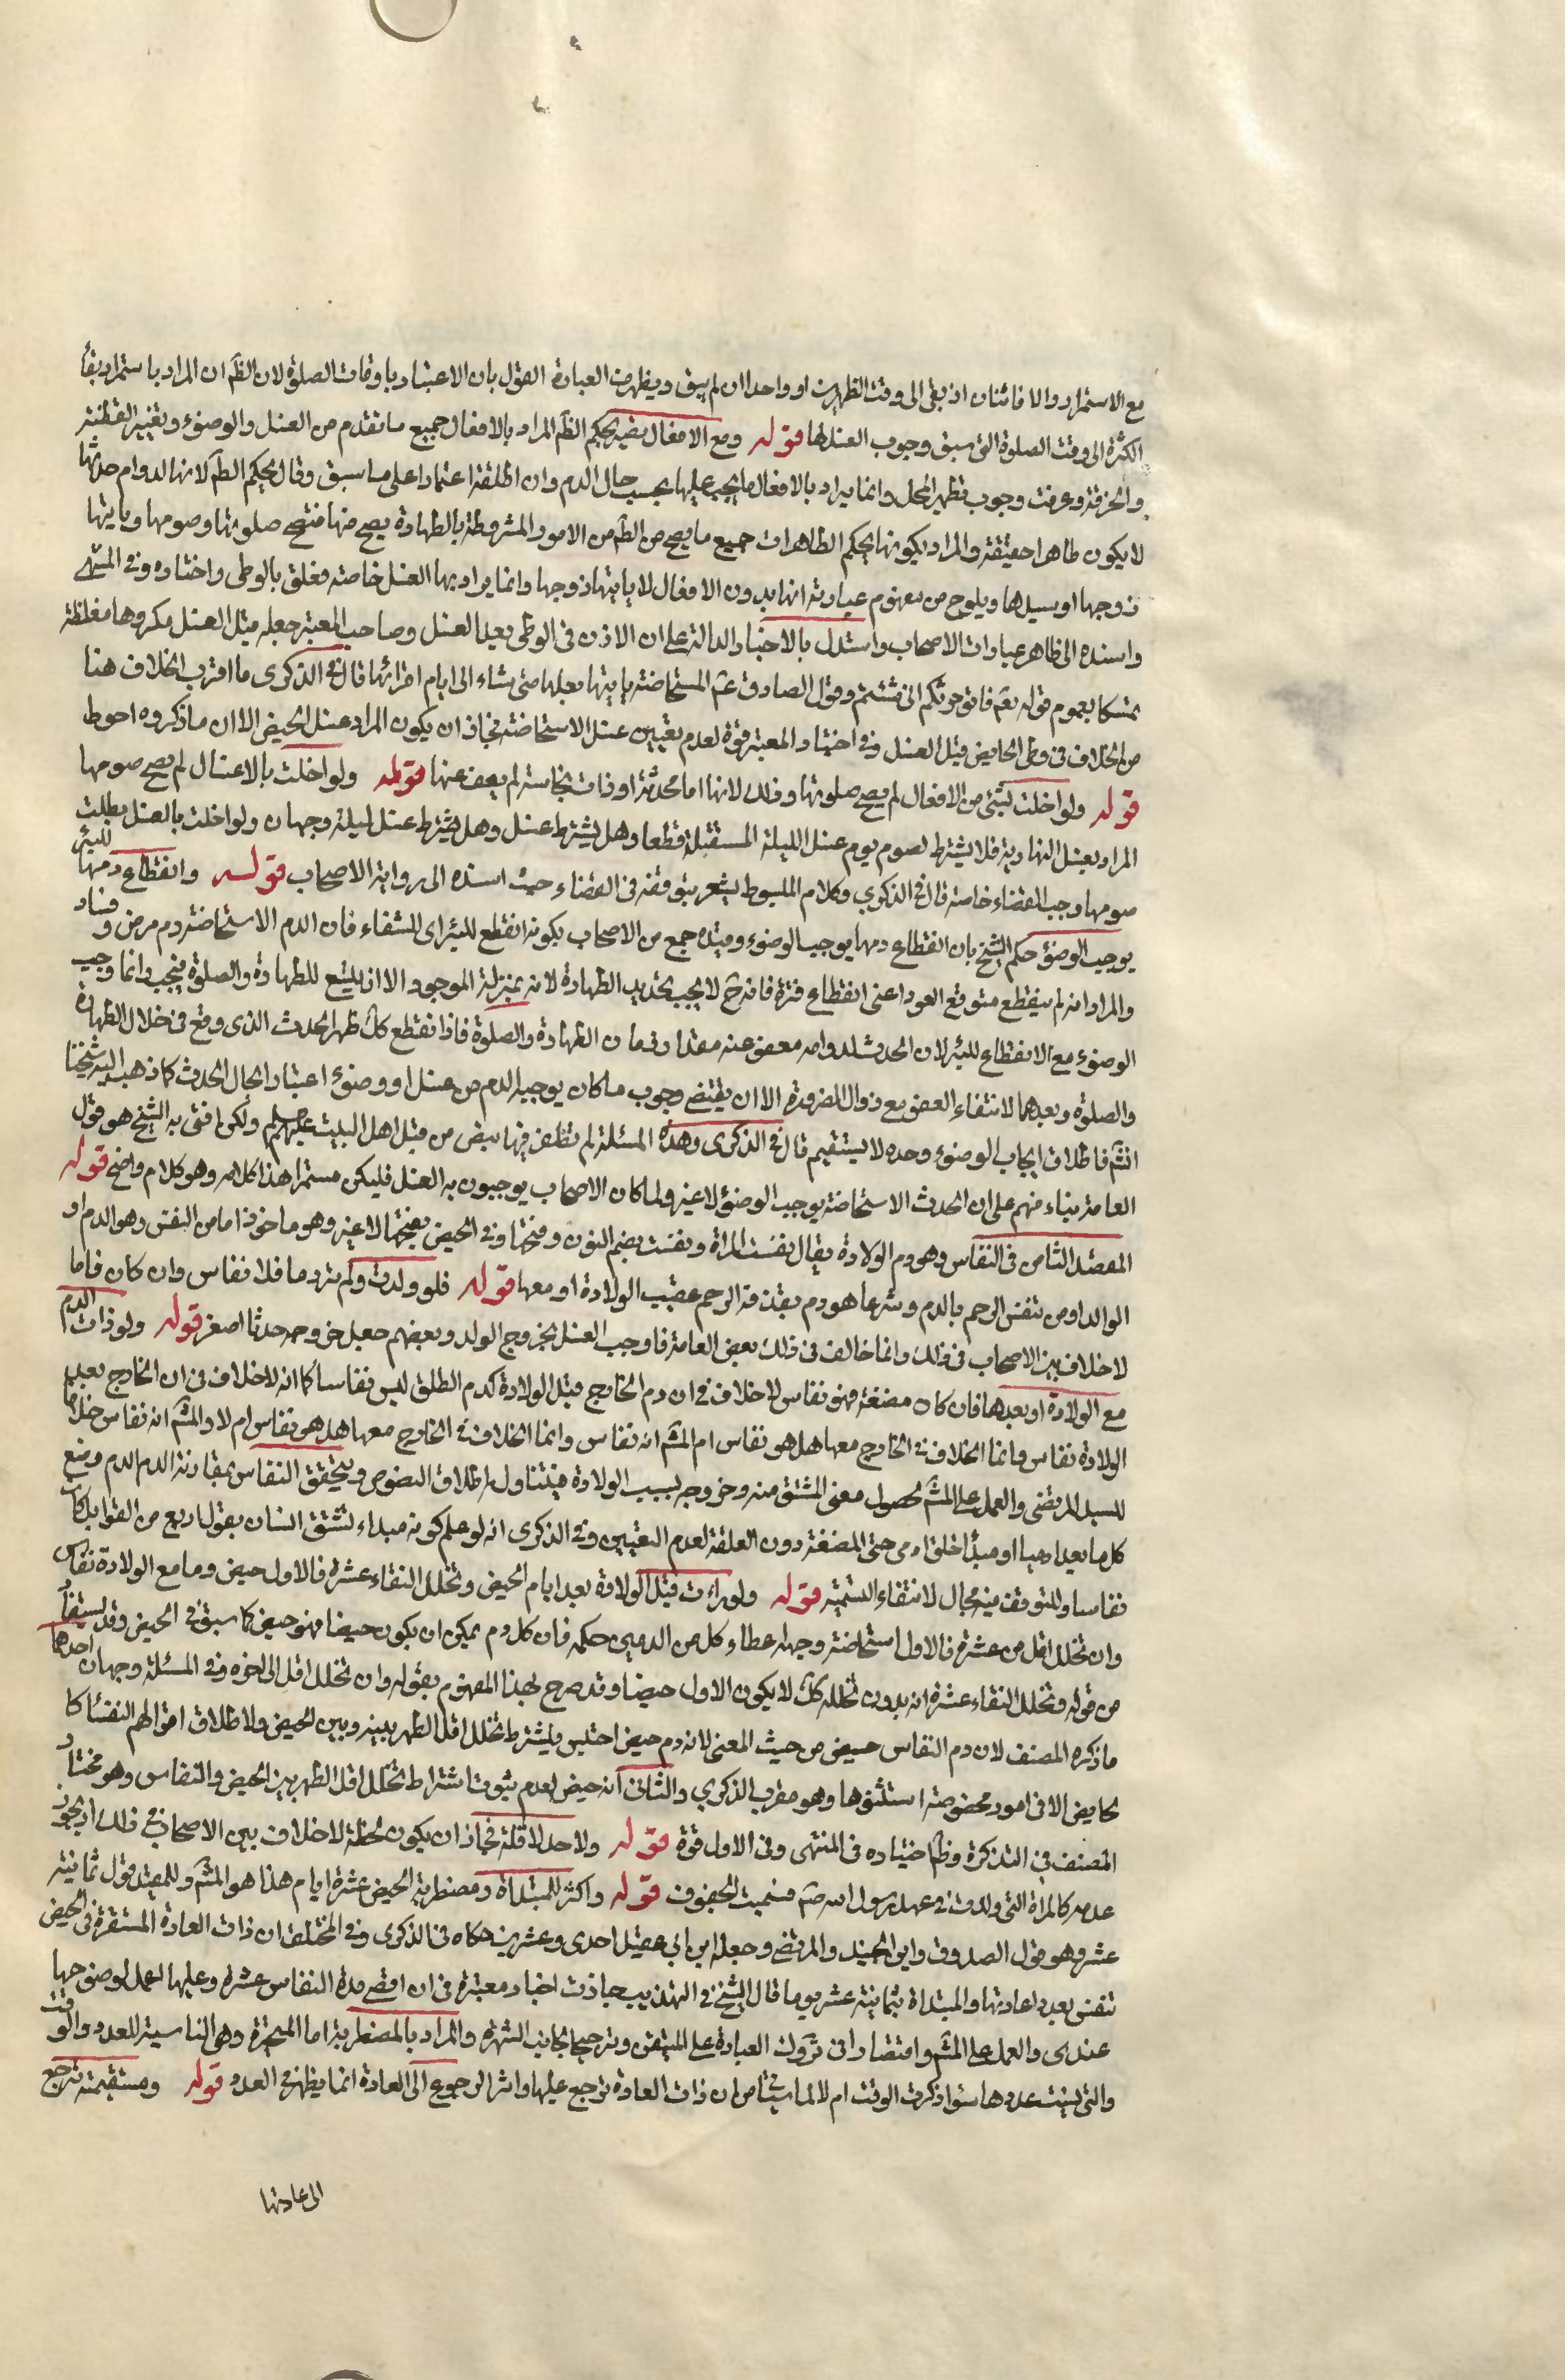 مع الاستمرار والا فاثنان ان بقى الى وقت الظهرين او واحدا ان لم يبق ويظهر من العبارة القول بان الاعتبار باوقات الصلوة لان الظم ان المراد باستمرار بقأ
الكثرة الى وقت الصلوة التى سبق وجوب الغسل لها قوله ومع الافعال يصير بحكم الظم المراد بالافعال جميع ما تقدم من الغسل والوضوء وتغيير القطنة
والخرقة وعرفت وجوب تطهير المحل وانما يراد بالافعال ما يجب عليها بحسب حال الدم وان اطلقه اعتمادا على ما سبق وقال بحكم الطم لانها لدوام حدثها
لا يكون طاهرا حقيقة والمراد بكونها بحكم الطاهرات جميع ما يصح من الطم من الامور المشروطة بالطهارة يصح منها فتصح صلوتها وصومها وياتيها
زوجها او سيدها ويلوح من مفهوم عبارته انها بدون الافعال لا ياتيها زوجها وانما يراد بها الغسل خاصة فعلق بالوطى واختاره وفى المنتهى
واسنده الى ظاهر عبارات الاصحاب واستدل بالاخبار الدالة على ان الاذن فى الوطى بعد الغسل وصاحب المعتبر جعله مثل الغسل مكروها مغلظة
تمسكا بعموم قوله تعم فاتوا حرثكم انى شئتم وقول الصادق عم المستحاضة ياتيها بعلها متى شاء الى ايام اقرائها قال فى الذكرى ما اقرب الخلاف هنا
من الخلاف فى وطى الحايض قبل الغسل وفى اختيار المعتبر قوة لعدم تعيين غسل الاستحاضة فجاز ان يكون المراد غسل الحيض الا ان ما ذكروه احوط
قوله ولو اخلت بشئ من الافعال لم يصح صلوتها وذلك لانها اما محدثة او ذات نجاسة لم يعف عنها قوله ولو اخلت بالاغسال لم يصح صومها
المراد بغسل النهارية فلا يشترط لصوم يوم غسل الليلة المستقبلة قطعا وهل يشترط غسل وهل يشترط غسل لليلة وجهان ولو اخلت بالغسل بطلت
صومها وجب القضاء خاصة قال فى الذكرى وكلام المبسوط يشعر بتوقفه فى القضاء حيث اسنده الى رواية الاصحاب قوله وانقطاع دمها للبرء
يوجب الوضوء حكم الشيخ بان انقطاع دمها يوجب الوضوء وقيده جمع من الاصحاب بكونه انقطع للبرء اى للشفاء فان الدم الاستحاضة دم مرض وفساد
والمراد انه لم ينقطع متوقع العود اعنى انقطاع فترة فانه ح لا يجب تجديد الطهارة لانه بمنزلة الموجود الا ان يتسع للطهارة والصلوة فيجب وانما وجب
الوضوء مع الانقطاع للبرء لان الحدث لدوامه معفو عنه مقدار زمان الطهارة والصلوة فاذا انقطع كك ظهر الحدث الذى وقع فى خلال الطهارة
والصلوة وبعدهما لانتفاء العفو مع زوال الضرورة الا ان يقتضى وجوب ما كان يوجبه الدم من غسل او وضوء اعتبارا لحال الحدث كما ذهب اليه شيخنا
انتم فاطلاق ايجاب الوضوء وحده لا يستقيم قال فى الذكرى وهذه المسئلة لم نظفر فيها بنص من قبل اهل البيت عليهم السلم ولكن افتى به الشيخ هو قول
العامة بناء منهم على ان الحدث الاستحاضة يوجب الوضوء لا غير ولما كان الاصحاب يوجبون به الغسل فليكن مستمرا هذا كلامه وهو كلام واضح قوله
المقصد الثامن فى النفاس وهو دم الولادة يقال نفست المراة ونفست بضم النون وفتحها وفى الحيض بفتحها لا غير وهو ماخوذ اما من النفس وهو الدم او
الوالد او من تنفس الرحم بالدم وشرعا هو دم يقذفه الرحم عقيب الولادة او معها قوله فلو ولدت ولم تر دما فلا نفاس وان كان تاما
لا خلاف بين الاصحاب فى ذلك وانما خالف فى ذلك بعض العامة فاوجب الغسل بخروج الولد وبعضهم جعل خروجه حدثا اصغر قوله ولو رات الدم
مع الولادة او بعدها فان كان مضغة فهو نفاس لا خلاف فى ان دم الخارج قبل الولادة كدم الطلق ليس نفاسا كما انه لا خلاف فى ان الخارج بعد
الولادة نفاس وانما الخلاف فى الخارج معها هل هو نفاس ام المشم انه نفاس وانما الخلاف فى الخارج معها هل هو نفاس ام لا والمشم انه نفاس خلافا
للسيد المرتضى والعمل على المشم لحصول معنى المشتق منه وخروجه بسبب الولادة فيتناوله اطلاق النصوص ويتحقق النفاس بمقارنة الدم الدم وضع
كل ما يعد ادميا او مبدأ خلق ادمى حتى المضغة دون العلقة لعدم التعيين وفى الذكرى انه لو علم كونه مبداء نشق انسان بقول اربع من القوابل كان
نفاسا وللتوقف فيه مجال لانتفاء التسمية قوله ولو رات قبل الولادة بعد ايام الحيض وتخلل النقاء عشرة فالاول حيض وما مع الولادة نفاس
وان تخلل اقل من عشرة فالاول استحاضة وجه اعطاء كل من الدمين حكمه فان كل دم يمكن ان يكون حيضا فهو حيض كما سبق فى الحيض وقد يستفاد
من قوله وتخلل النقاء عشرة انه بدون تخلله كك لا يكون الاول حيضا وقد صرح بهذا المفهوم بقوله وان تخلل اقل الى اخره وفى المسئلة وجهان احدهما
ما ذكره المصنف لان دم النفاس حيض من حيث المعنى لانه دم حيض احتبس فيشترط تخلل اقل الطهر بينه وبين الحيض ولاطلاق اقوالهم النفساء كا
لحايض الا فى امور مخصوصة استثنوها وهو مقرب الذكرى والثانى انه حيض لعدم ثبوت اشتراط تخلل اقل الطهر بين الحيض والنفاس وهو مختار
المصنف فى التذكرة وظم اختياره فى المنتهى وفى الاول قوة قوله ولا حد لاقله فجاز ان يكون لحظة لا خلاف بين الاصحاب فى ذلك او يجوز
عدمه كالمراة التى ولدت فى عهد رسول الله صم فسميت الجفوف قوله واكثره للمبتداة ومضطربة الحيض عشرة ايام هذا هو المشم وللمفيد قول ثمانية
عشر وهو قول الصدوق وابن الجنيد والمرتضى وجعله ابن ابى عقيل احدى وعشرين حكاه فى الذكرى وفى المختلف ان ذات العادة المستقرة فى الحيض
تنفس بعدد عادتها والمبتداة بثمانية عشر يوما قال الشيخ فى التهذيب جاءت اخبار معتبرة فى ان اقصى مدة النفاس عشرة وعليها العمل لوضوحها
عندى والعمل على المشم واقتصارا فى تروك العبادة على المتيقن وترجيحا لجانب الشهرة والمراد بالمضطربة اما المتحيرة وهى الناسية للعدد والوقت
والتى نسيت عددها سواء ذكرت الوقت ام لا لما سياتى من ان ذات العادة ترجع عليها واثر الرجوع الى العادة انما يظهر فى العدد قوله ومستقيمته ترجع
الى عادتها